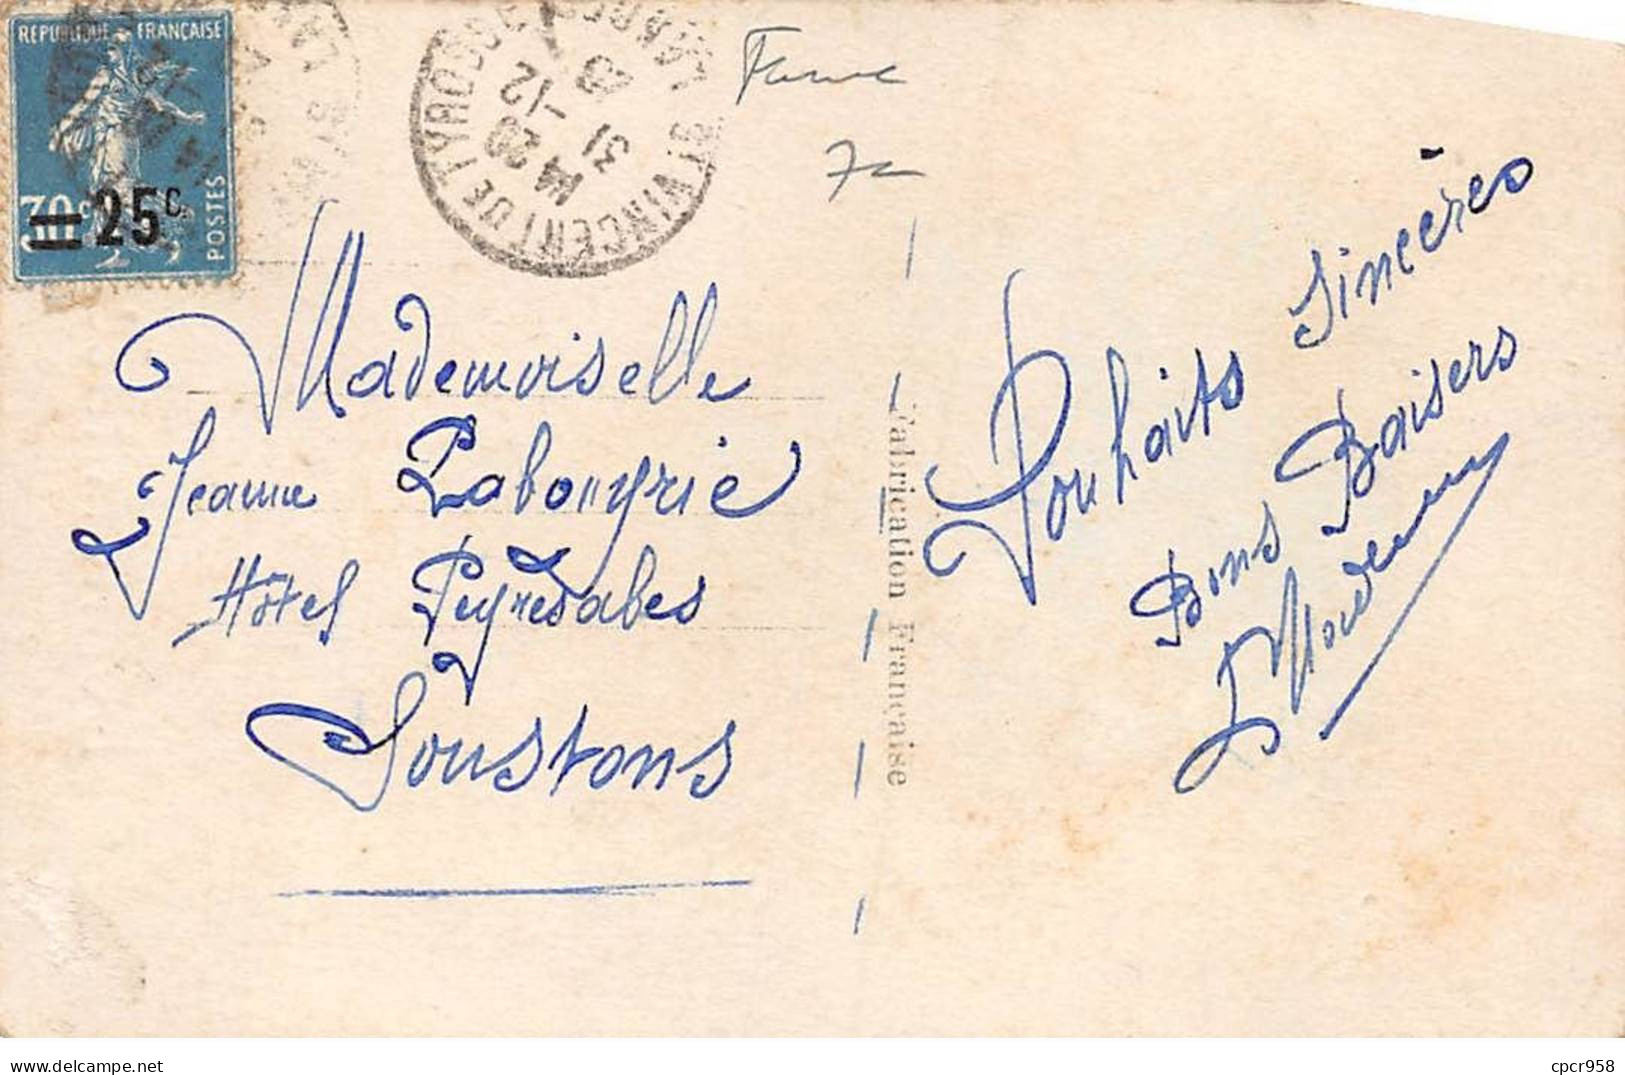 REPUBLIQUE FRANÇAISE
30c
25c.
POSTES
ST VINCENT DE TYROSSE
LANDES
14 20
31 -12
Mademoiselle
Jeanne Labouyrie
Hôtel Peyresabes
Soustons
Fabrication Française
Souhaits Sincères
Bons Baisers
cpcr958